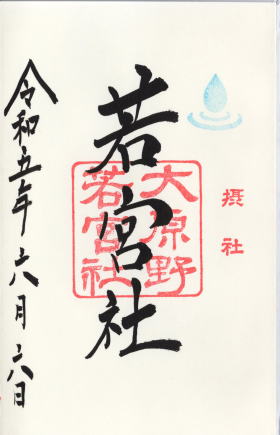 摂社
大原野
若宮社
若宮社
令和五年六月六日